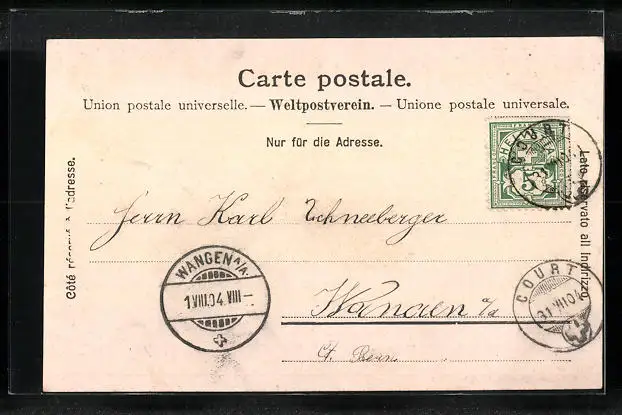 Carte postale.
Union postale universelle. — Weltpostverein. — Unione postale universale.
Nur für die Adresse.
Côté réservé à l'adresse.
Lato riservato all indirizzo.
HELVETIA
5
COURT
Herrn Karl Schneeberger
WANGEN A/A.
1.VIII.04.VIII—
COURT
31.VII.04
Wangen a/a
Ct. Bern